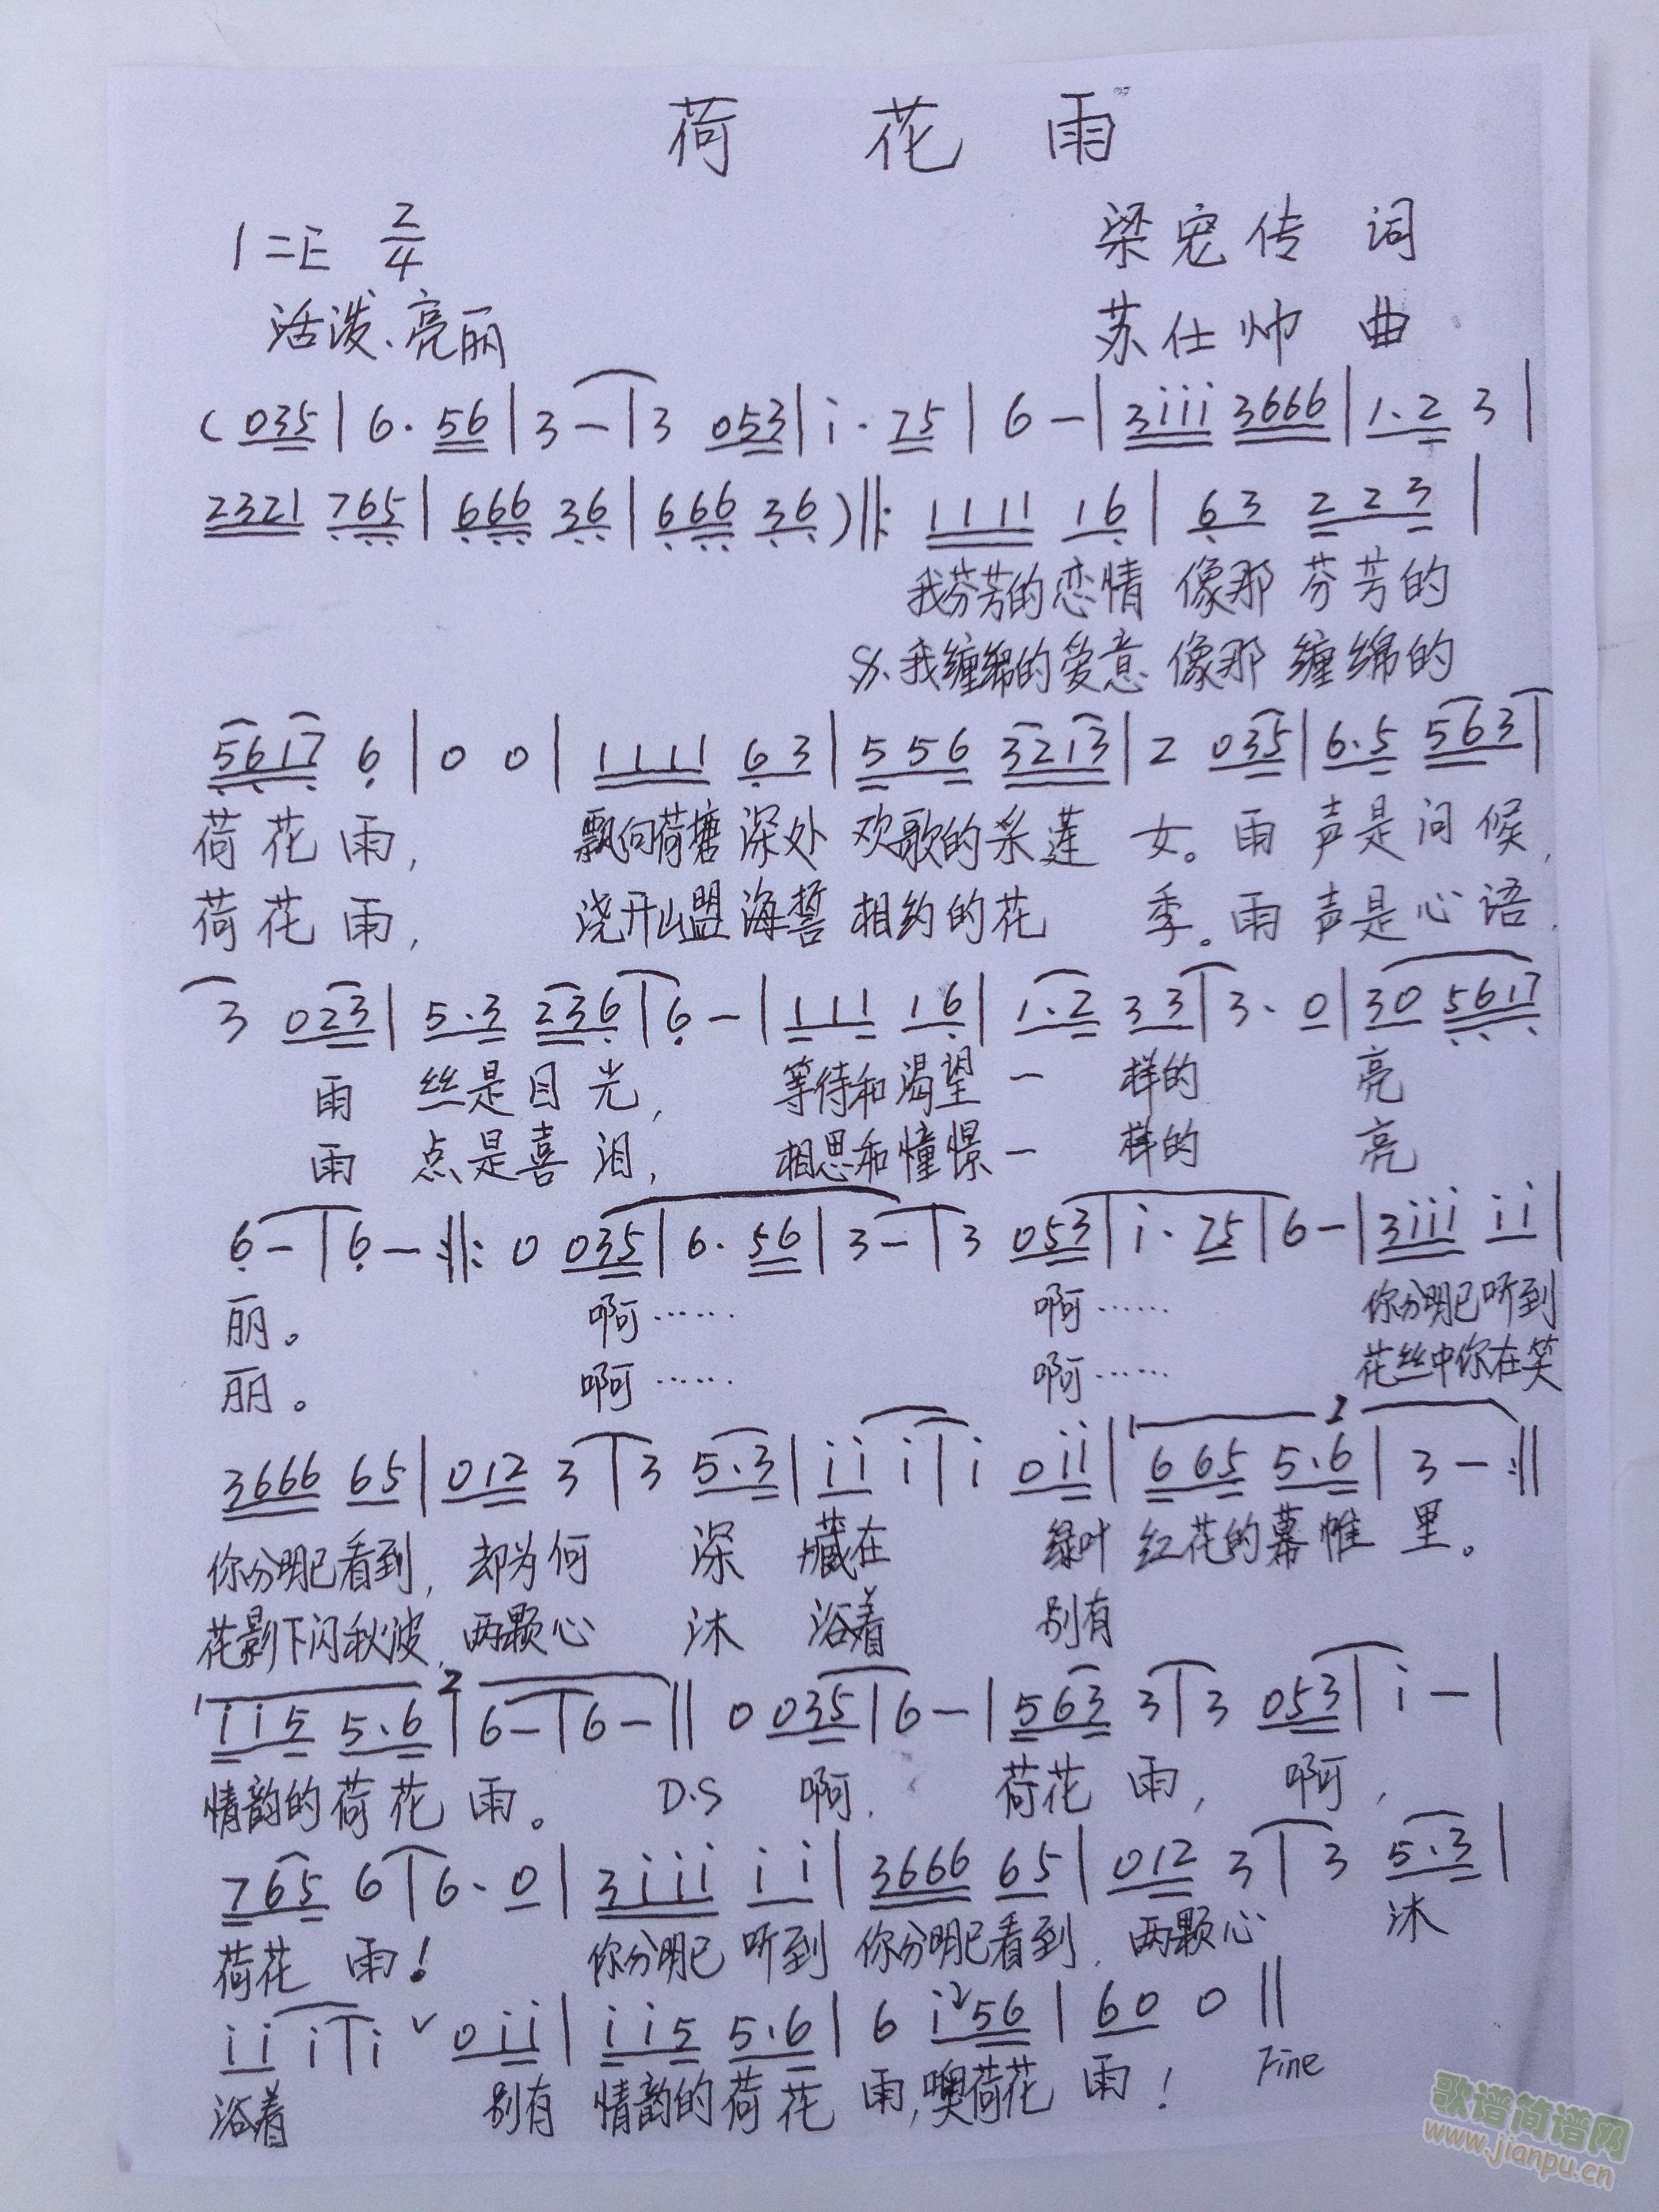 荷 花 雨
1=E 2/4
梁宠传 词
活泼、亮丽
苏仕帅 曲
( 035 | 6· 56 | 3 — | 3 053 | i· 75 | 6 — | 3iii 3666 | 1·2 3 |
2321 765 | 666 36 | 666 36 ) ‖: 1111 16 | 63 223 |
我芬芳的恋情 像那 芬芳的
𝄋 我缠绵的爱意 像那 缠绵的
5617 6 | 0 0 | 1111 63 | 556 3213 | 2 035 | 6·5 563 |
荷花雨, 飘向荷塘深处 欢歌的采莲 女。雨 声是问候,
荷花雨, 浇开山盟海誓 相约的花 季。雨 声是心语,
3 023 | 5·3 236 | 6 — | 111 16 | 1·2 33 | 3· 0 | 30 5617
雨 丝是目光, 等待和渴望 一 样的 亮
雨 点是喜泪, 相思和憧憬 一 样的 亮
6 — | 6 — :‖: 0 035 | 6· 56 | 3 — | 3 053 | i· 75 | 6 — | 3iii ii |
丽。 啊…… 啊…… 你分明已听到
丽。 啊…… 啊…… 花丝中你在笑
3666 65 | 012 3 | 3 5·3 | ii i | i 0ii | 1 665 5·6 | 2 3 — :‖
你分明已看到, 却为何 深 藏在 绿叶 红花的幕帷 里。
花影下闪秋波, 两颗心 沐 浴着 别有
1 ii5 5·6 | 2 6 — | 6 — ‖ 0 035 | 6 — | 563 3 | 3 053 | i — |
情韵的荷花 雨。 D.S 啊, 荷花 雨, 啊,
765 6 | 6· 0 | 3iii ii | 3666 65 | 012 3 | 3 5·3 |
荷花 雨! 你分明已 听到 你分明已看到, 两颗心 沐
ii i | i ˅ 0ii | ii5 5·6 | 6 i˅56 | 60 0 ‖
浴着 别有 情韵的荷花 雨,噢荷花 雨! Fine
歌谱简谱网
www.jianpu.cn